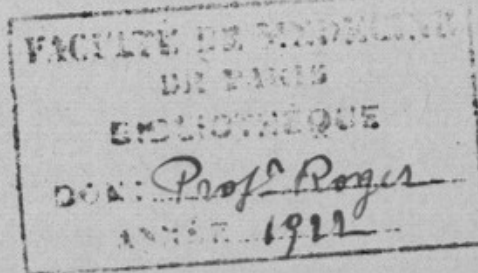 FACULTÉ DE MÉDECINE
DE PARIS
BIBLIOTHÈQUE
DON: Profr Roger
ANNÉE 1922